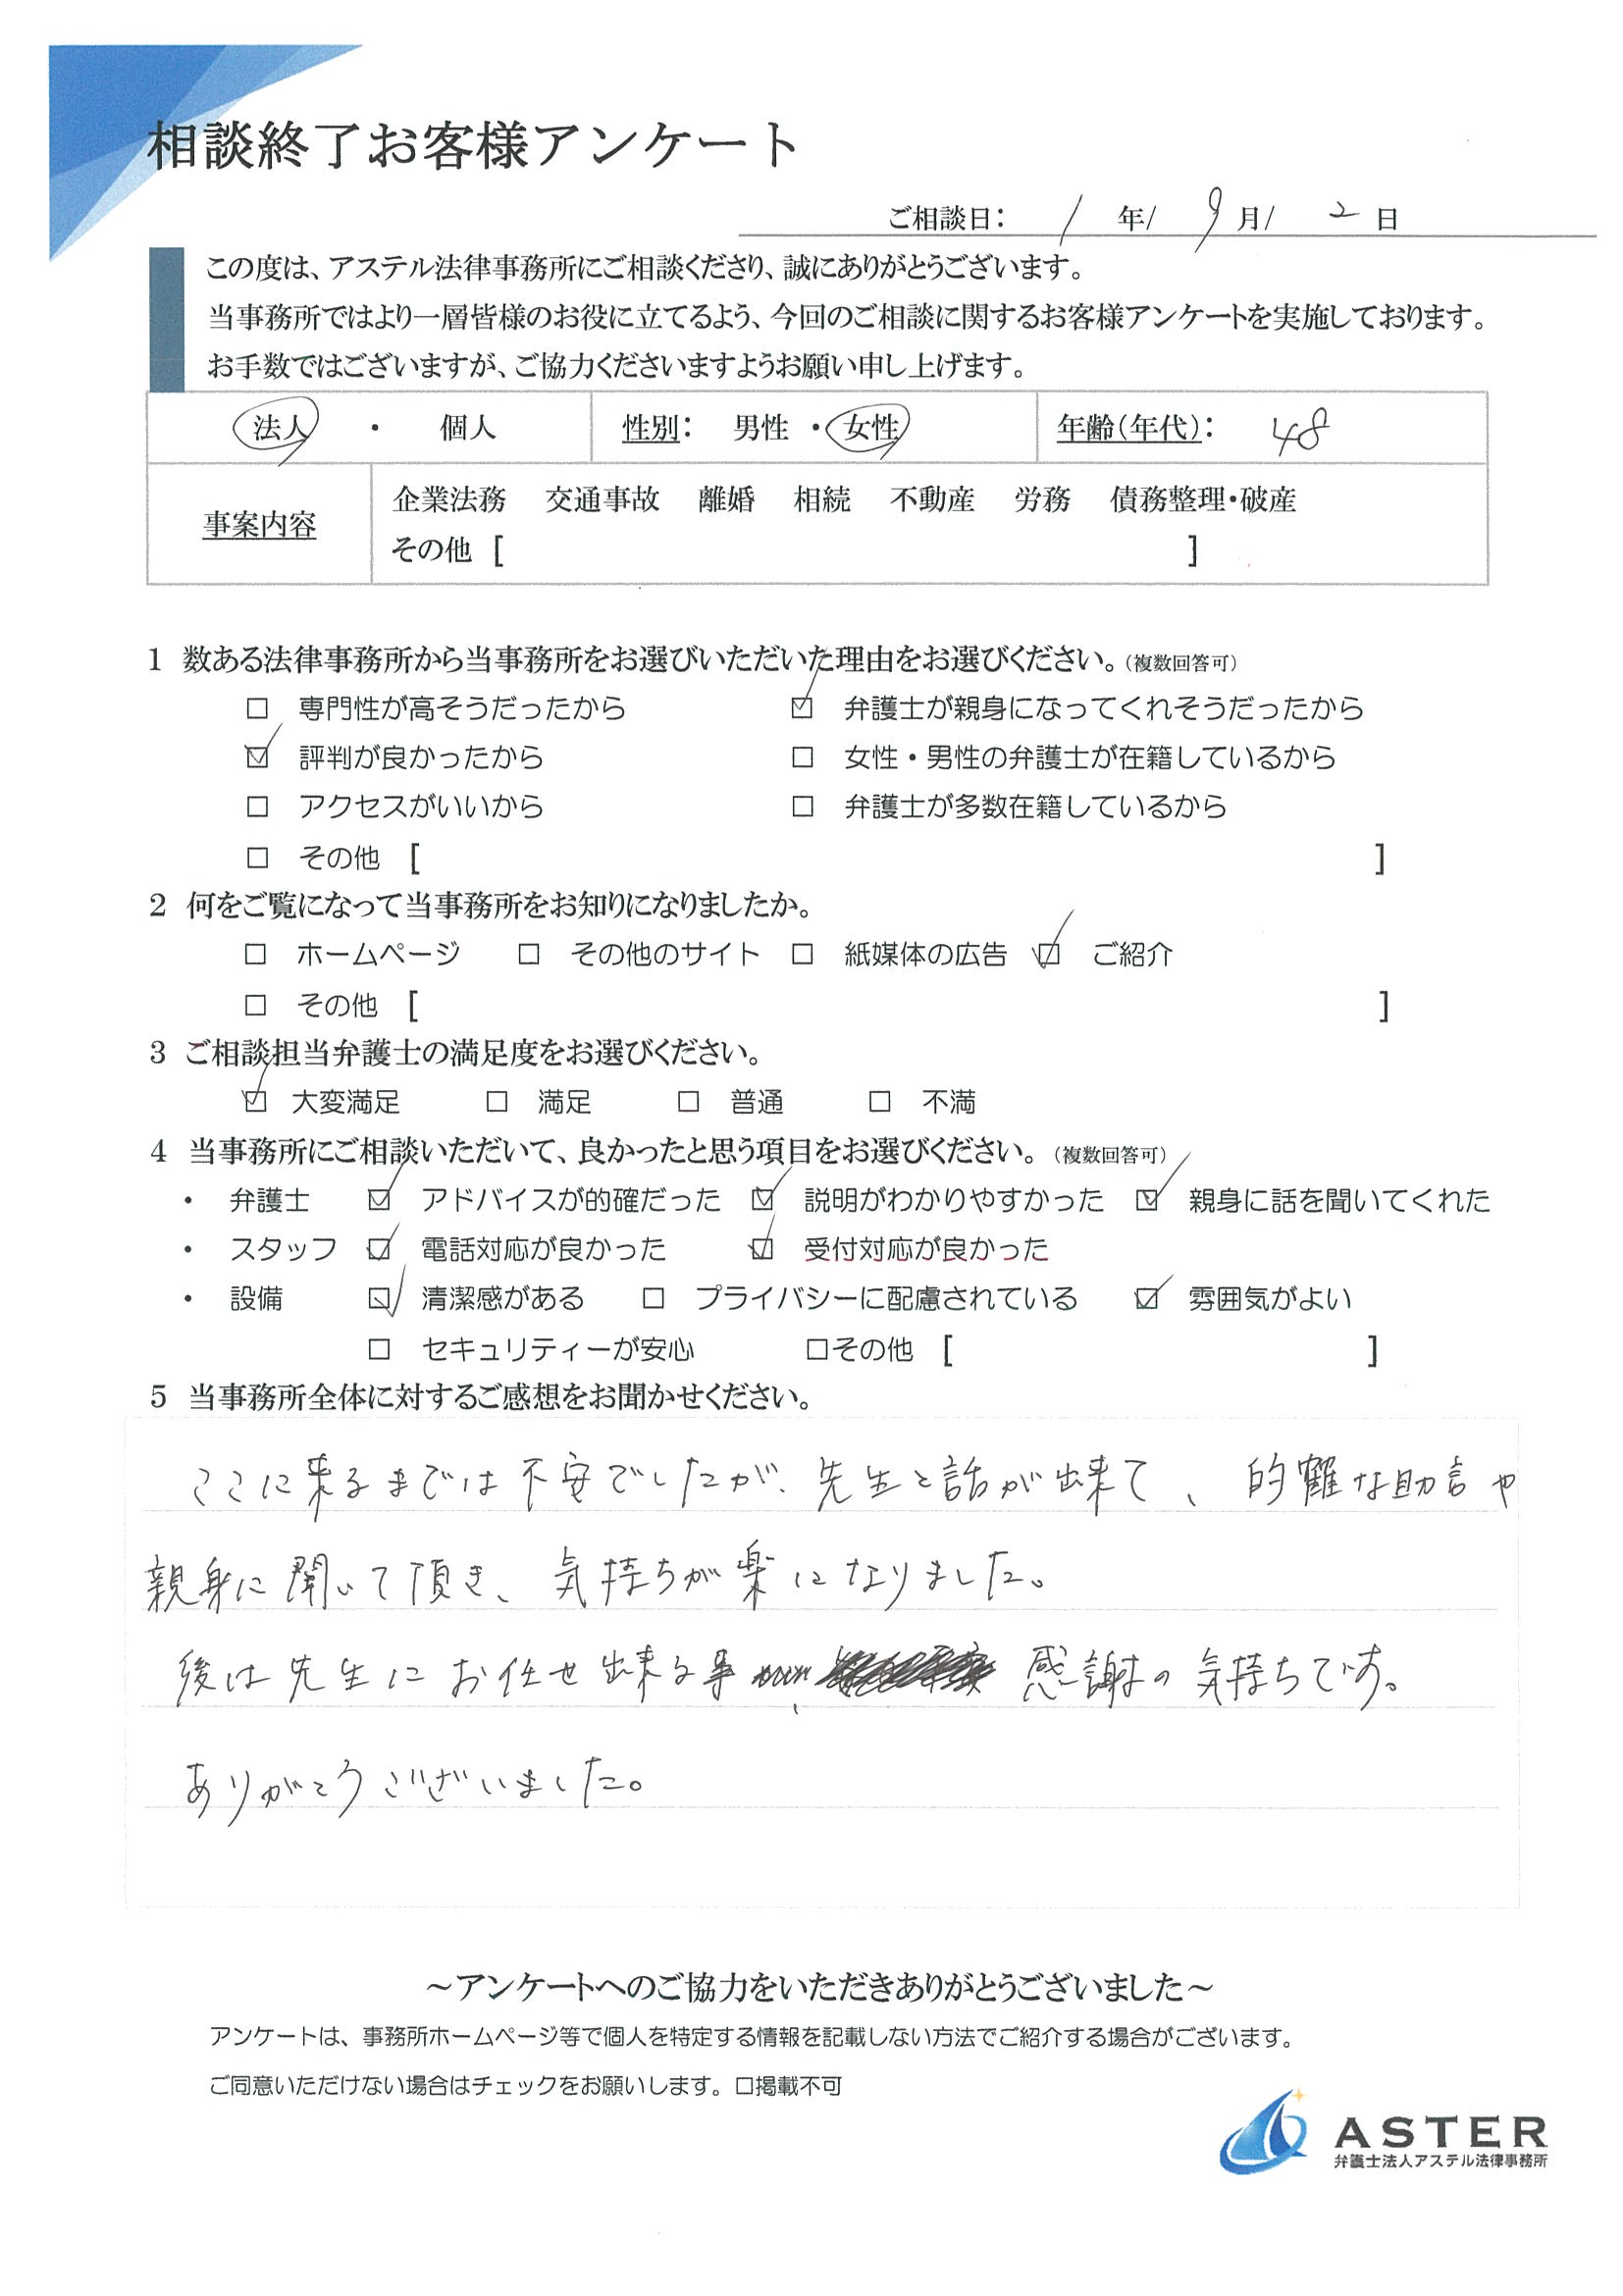 相談終了お客様アンケート
ご相談日： 1 年/ 9 月/ 2 日
この度は、アステル法律事務所にご相談くださり、誠にありがとうございます。
当事務所ではより一層皆様のお役に立てるよう、今回のご相談に関するお客様アンケートを実施しております。
お手数ではございますが、ご協力くださいますようお願い申し上げます。
法人 ・ 個人 性別： 男性 ・ 女性 年齢（年代）： 48
事案内容
企業法務 交通事故 離婚 相続 不動産 労務 債務整理・破産
その他 [ ]
1 数ある法律事務所から当事務所をお選びいただいた理由をお選びください。（複数回答可）
☐ 専門性が高そうだったから ☑ 弁護士が親身になってくれそうだったから
☑ 評判が良かったから ☐ 女性・男性の弁護士が在籍しているから
☐ アクセスがいいから ☐ 弁護士が多数在籍しているから
☐ その他 [ ]
2 何をご覧になって当事務所をお知りになりましたか。
☐ ホームページ ☐ その他のサイト ☐ 紙媒体の広告 ☑ ご紹介
☐ その他 [ ]
3 ご相談担当弁護士の満足度をお選びください。
☑ 大変満足 ☐ 満足 ☐ 普通 ☐ 不満
4 当事務所にご相談いただいて、良かったと思う項目をお選びください。（複数回答可）
・ 弁護士 ☑ アドバイスが的確だった ☑ 説明がわかりやすかった ☑ 親身に話を聞いてくれた
・ スタッフ ☑ 電話対応が良かった ☑ 受付対応が良かった
・ 設備 ☑ 清潔感がある ☐ プライバシーに配慮されている ☑ 雰囲気がよい
☐ セキュリティーが安心 ☐その他 [ ]
5 当事務所全体に対するご感想をお聞かせください。
ここに来るまでは不安でしたが、先生と話が出来て、的確な助言や
親身に聞いて頂き、気持ちが楽になりました。
後は先生にお任せ出来る事、感謝の気持ちです。
ありがとうございました。
～アンケートへのご協力をいただきありがとうございました～
アンケートは、事務所ホームページ等で個人を特定する情報を記載しない方法でご紹介する場合がございます。
ご同意いただけない場合はチェックをお願いします。☐掲載不可
ASTER
弁護士法人アステル法律事務所